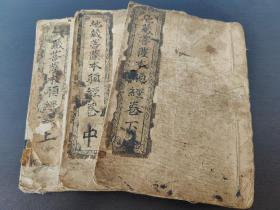 地藏菩薩本願經卷下
地藏菩薩本願經卷中
藏菩薩本願經
上